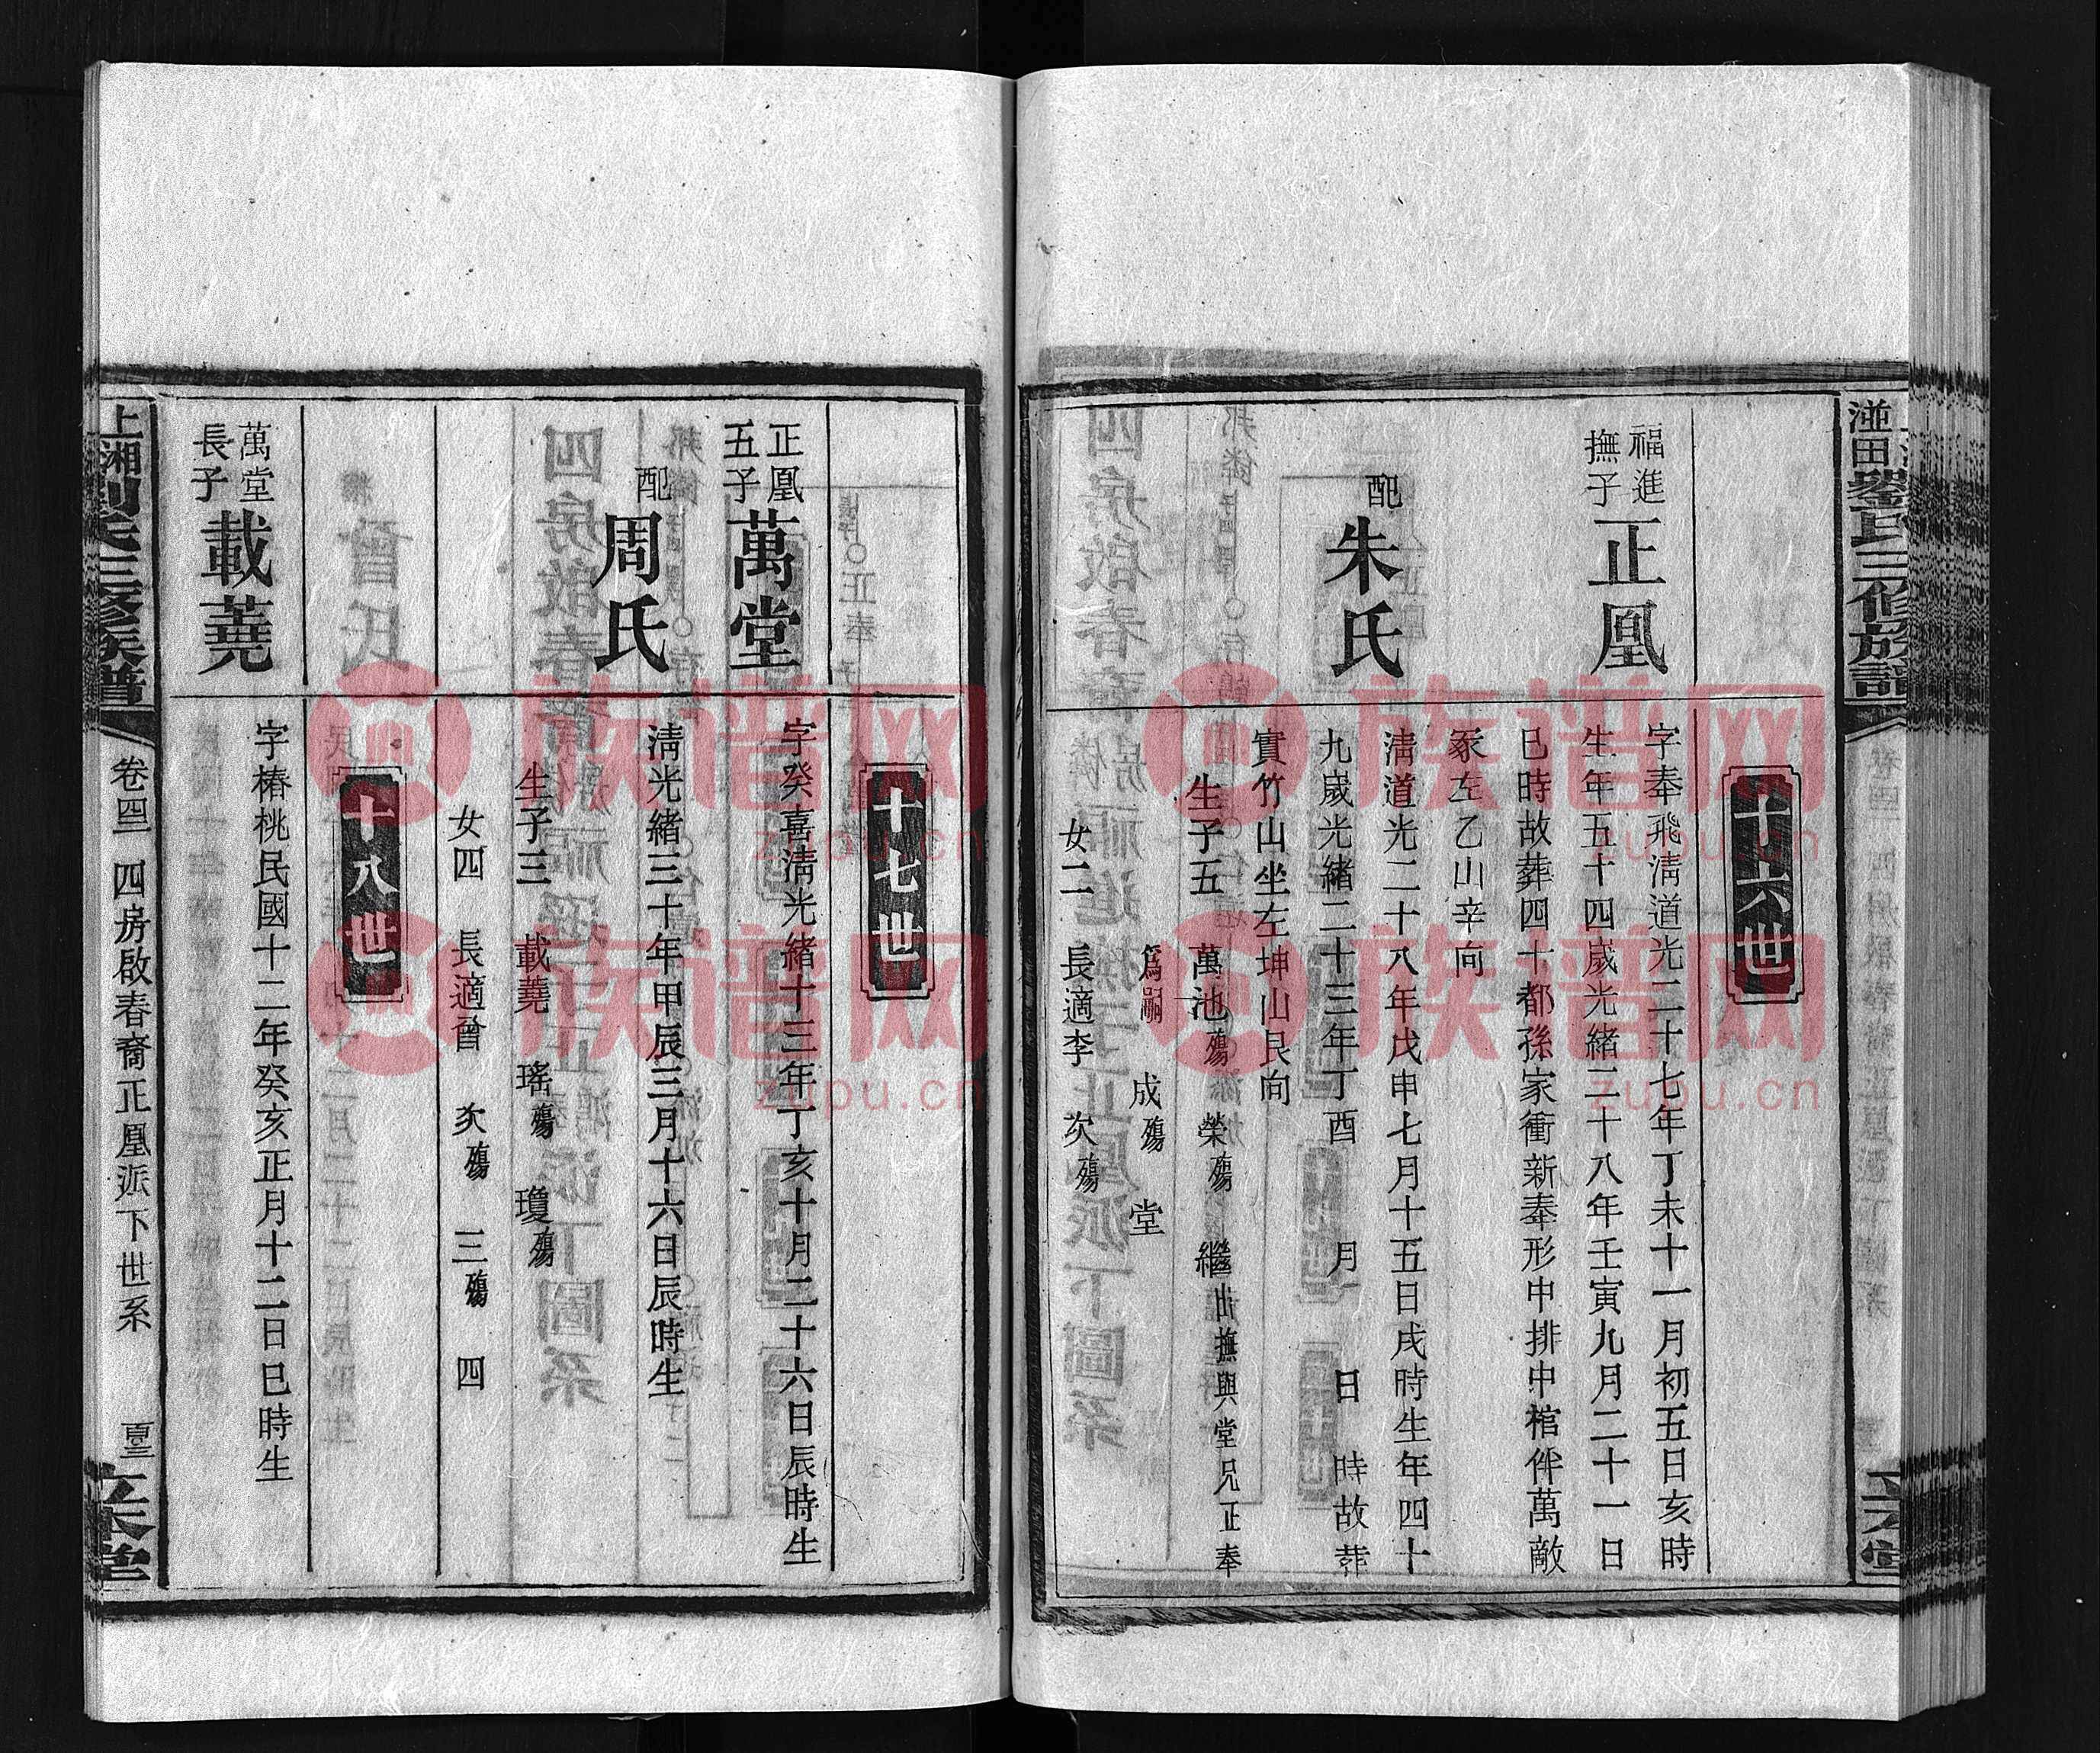 湴田劉氏三修族譜
十六世
福進
撫子
正凰
字奉飛淸道光二十七年丁未十一月初五日亥時
生年五十四歲光緒二十八年壬寅九月二十一日
巳時故葬四十都孫家衝新奉形中排中棺伴萬敵
冢左乙山辛向
配
朱氏
淸道光二十八年戊申七月十五日戌時生年四十
九歲光緒二十三年丁酉 月 日 時故葬
實竹山坐左坤山艮向
生子五 萬池殤 榮殤 繼出撫與堂兄正奉
爲嗣 成殤 堂
女二 長適李 次殤
十七世
正凰
五子
萬堂
字癸嘉淸光緒十三年丁亥十月二十六日辰時生
配
周氏
淸光緒三十年甲辰三月十六日辰時生
生子三 載蕘 瑤殤 瓊殤
女四 長適曾 次殤 三殤 四
十八世
萬堂
長子
載蕘
字椿桃民國十二年癸亥正月十二日巳時生
上湘劉氏三修族譜
卷四 四房啟春裔正凰派下世系
族谱网
zupu.cn
族谱网
zupu.cn
族谱网
zupu.cn
族谱网
zupu.cn